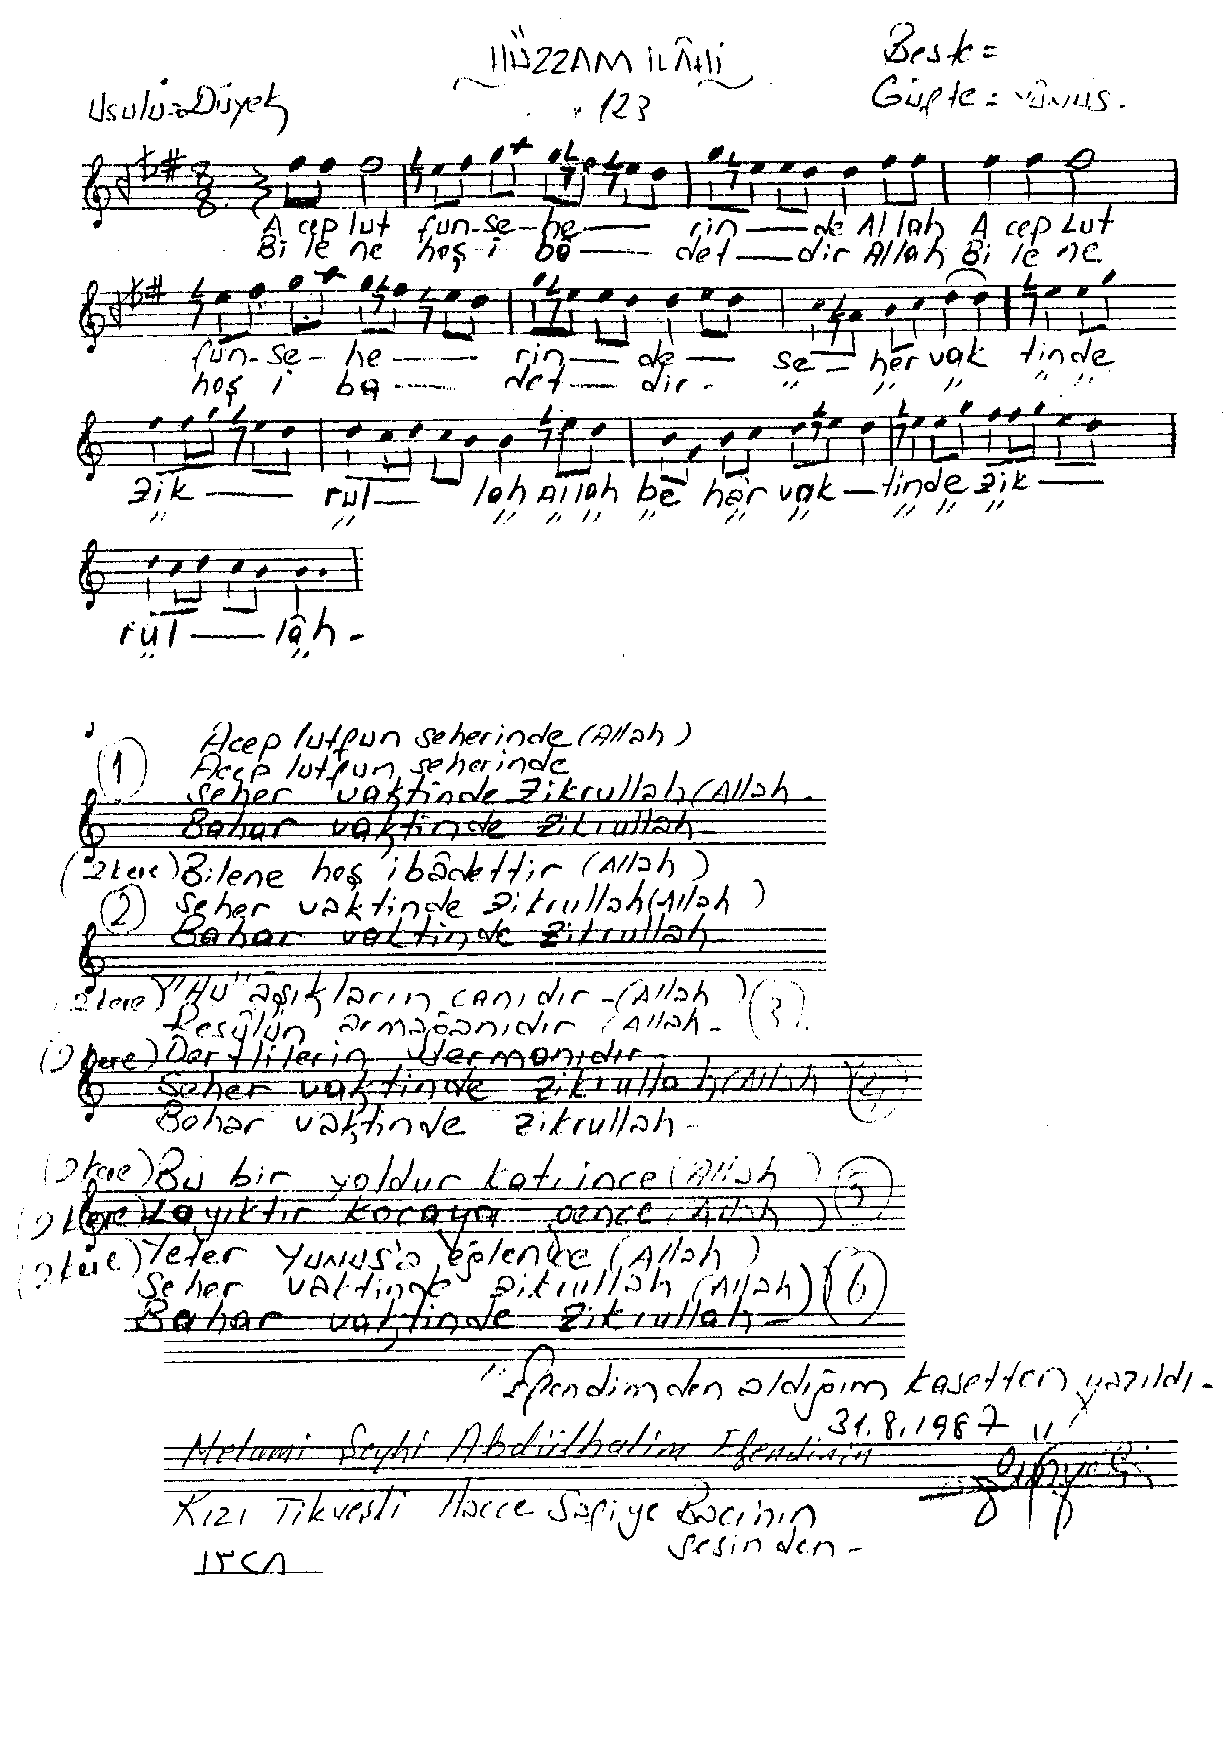 HÜZZAM İLÂHİ
Beste =
Usulü = Düyek
123
Güfte = YUNUS.
8
8
A cep lut fun-se-he— rin—de Allah A cep Lut
Bi le ne hoş-i bâ— det—dir Allah Bi le ne
fun-se-he— rin—de— se—her vak tinde
hoş i ba— det—dir- " " " " "
zik— rul— lah Allah be har vak—tinde zik—
" " " " " " " " " " "
rul—lâh-
" "
Acep lutfun seherinde (Allah)
1 Acep lutfun seherinde
Seher vaktinde zikrullah (Allah-
Bahar vaktinde zikrullah-
(2 kere) Bilene hoş ibâdettir (Allah)
2 Seher vaktinde zikrullah (Allah)
Bahar vaktinde zikrullah
(2 kere) "HU" aşıkların canıdır-(Allah) 3
Resûlün armağanıdır (Allah-
(2 kere) Dertlilerin dermanıdır-
Seher vaktinde zikrullah (Allah
Bahar vaktinde zikrullah-
(2 kere) Bu bir yoldur katı ince (Allah) 5
(2 kere) Layıktır kocaya gence (Allah)
(2 kere) Yeter YUNUS'a eğlence (Allah)
Seher vaktinde zikrullah (Allah) 6
Bahar vaktinde zikrullah-
"Efendimden aldığım kasetten yazıldı-
31.8.1987 "
Melami Şeyhi Abdülhalim Efendinin
Kızı Tikveşli Hacce Safiye Bacının
sesinden-